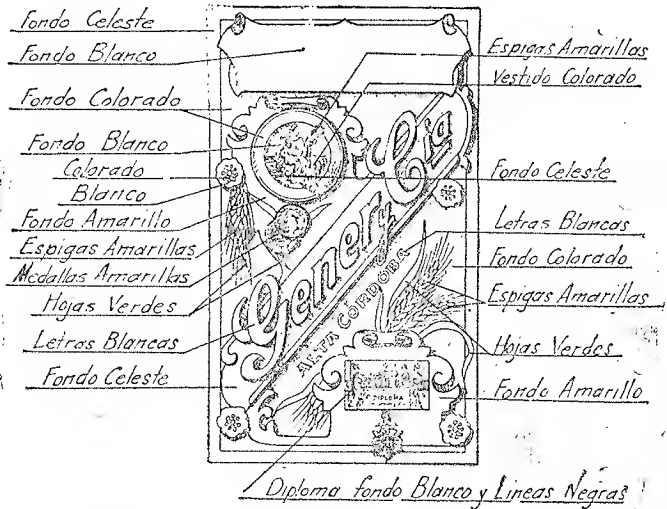 Fondo Celeste
Fondo Blanco
Fondo Colorado
Fondo Blanco
Colorado
Blanco
Fondo Amarillo
Espigas Amarillas
Medallas Amarillas
Hojas Verdes
Letras Blancas
Fondo Celeste
Gener y Cia
ALTA CÓRDOBA
DIPLOMA
Espigas Amarillas
Vestido Colorado
Fondo Celeste
Letras Blancas
Fondo Colorado
Espigas Amarillas
Hojas Verdes
Fondo Amarillo
Diploma fondo Blanco y Lineas Negras